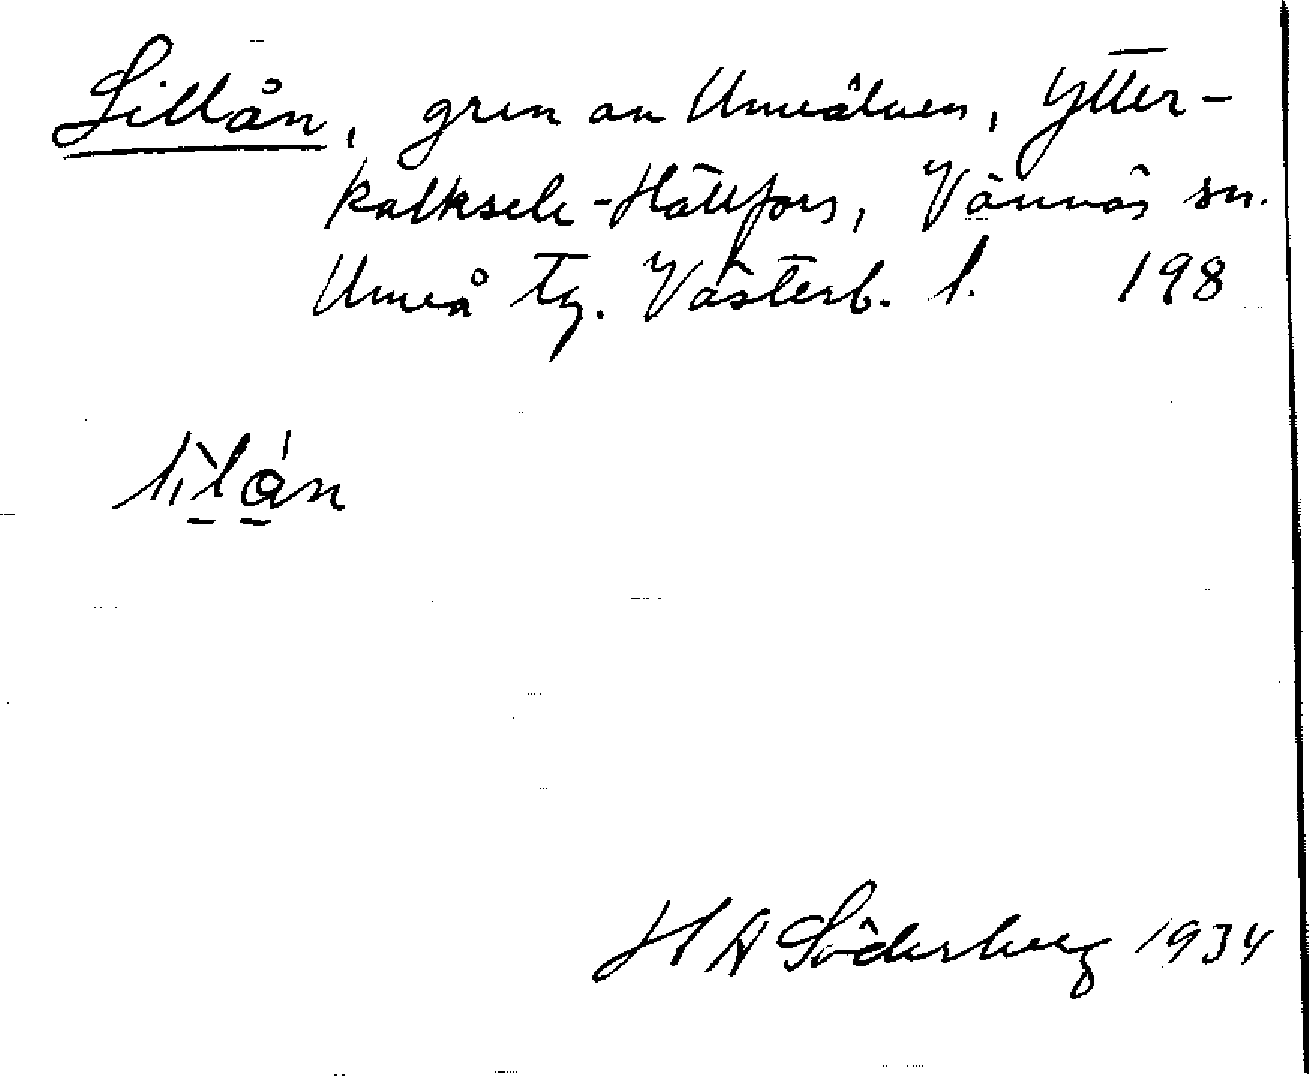 Lillån, gren av Umeälven, Ytter-
kalksele-Hällfors, Vännäs sn.
Umeå tg. Västerb. l. 198
H A Söderberg 1934